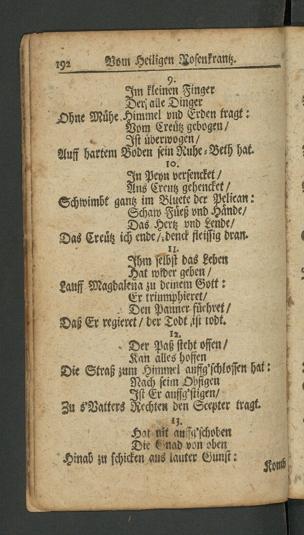 192 Vom Heiligen Rosenkrantz.
9.
Im kleinen Finger
Der alle Dinger
Ohne Mühe Himmel und Erden tragt:
Vom Creütz gebogen/
Ist überwogen/
Auff hartem Boden sein Ruhe-Beth hat.
10.
In Peyn versencket/
Ans Creutz gehencket/
Schwimbt gantz im Bluete der Pelican:
Schaw Füeß und Hände/
Das Hertz und Lende/
Das Creütz ich ende/ denck fleissig dran.
11.
Ihm selbst das Leben
Hat wider geben/
Lauff Magdalena zu deinem Gott:
Er triumphieret/
Den Panner füehret/
Daß Er regieret/ der Todt ist todt.
12.
Der Paß steht offen/
Kan alles hoffen
Die Straß zum Himmel auffg'schlossen hat:
Nach seim Obsigen
Ist Er auffg'stigen/
Zu s'Vatters Rechten den Scepter tragt.
13.
Hat nit auffg'schoben
Die Gnad von oben
Hinab zu schicken aus lauter Gunst:
Komb